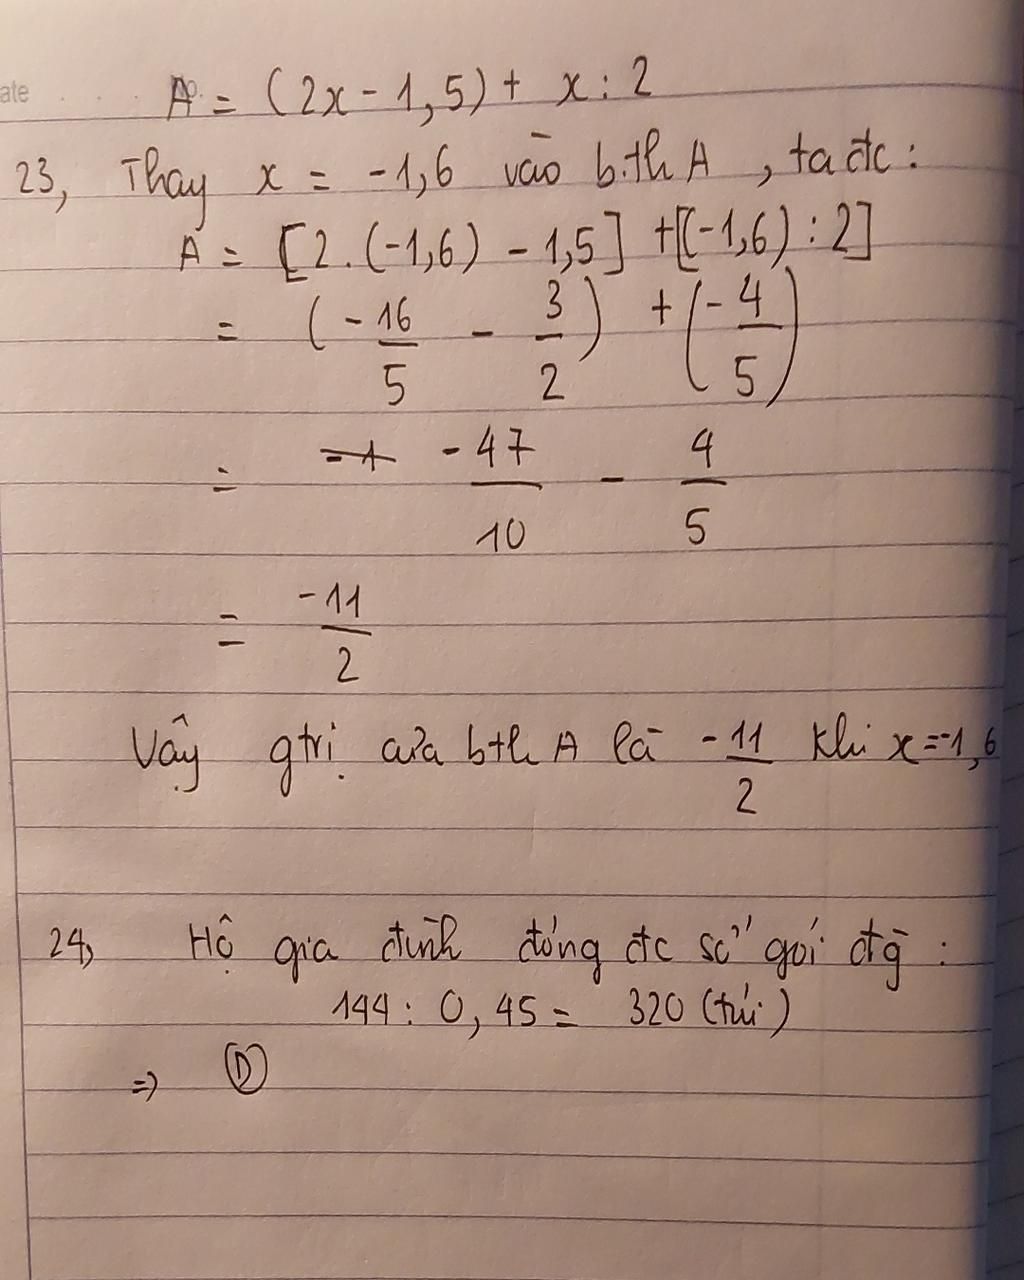 ate No.
A = (2x - 1,5) + x : 2
23, Thay x = -1,6 vào b.th A, ta đc:
A = [2.(-1,6) - 1,5] + [(-1,6) : 2]
= (-16/5 - 3/2) + (-4/5)
= -47/10 - 4/5
= -11/2
Vậy gtrị của bth A là -11/2 khi x = -1,6
24, Hộ gia đình đóng đc số gói đg:
144 : 0,45 = 320 (túi)
=> D